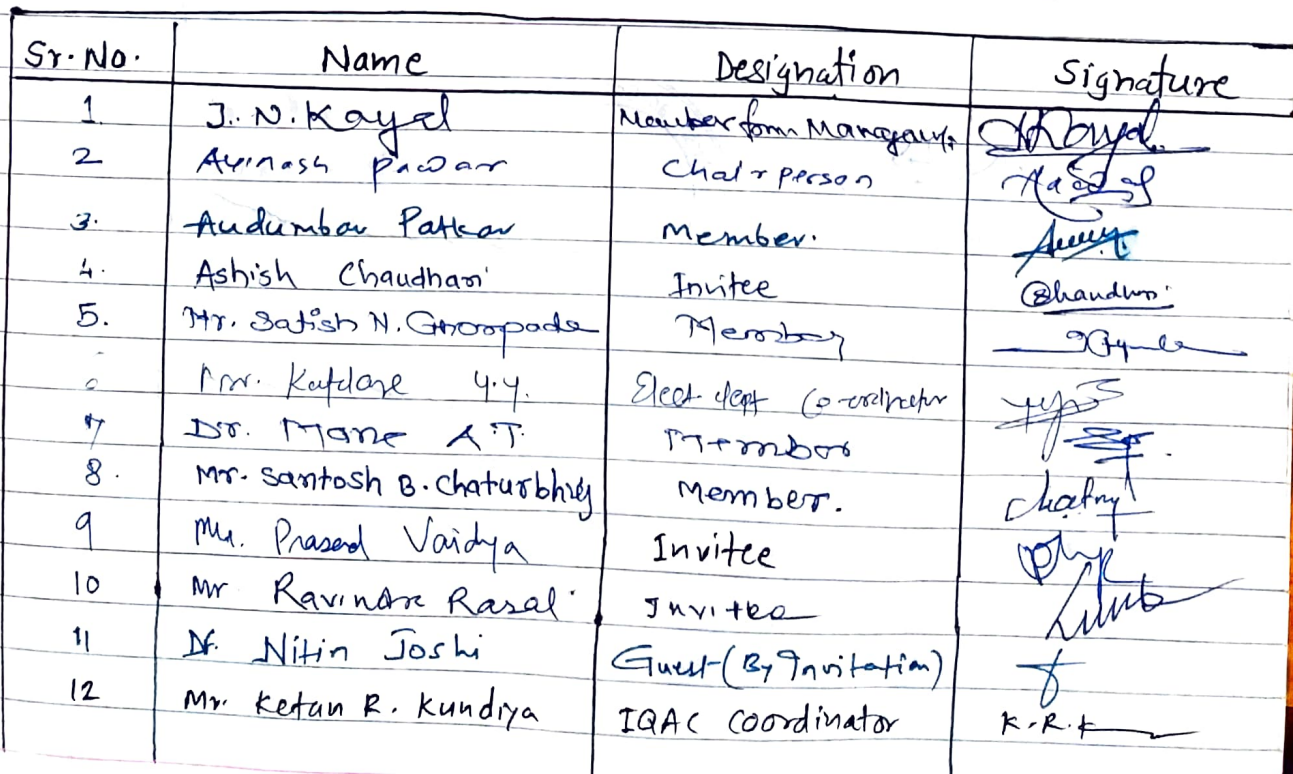 Sr. No. Name Designation Signature
1. J. N. Kayal Member form
2 Avinash Pawar Chairperson
3. Audumbar Patkar Member.
4. Ashish Chaudhari Invitee
5. Mr. Satish N. Ghorpade Member
Katdare Y.Y. Elect. dept Co-ordinator
7 Dr. Mane A.T. Member
8. Mr. Santosh B. Chaturbhuj Member.
9 Mr. Prasad Vaidya Invitee
10 Mr Ravindra Rasal Invitee
11 Dr. Nitin Joshi Guest (By Invitation)
12 Mr. Ketan R. Kundiya IQAC Coordinator K.R.K